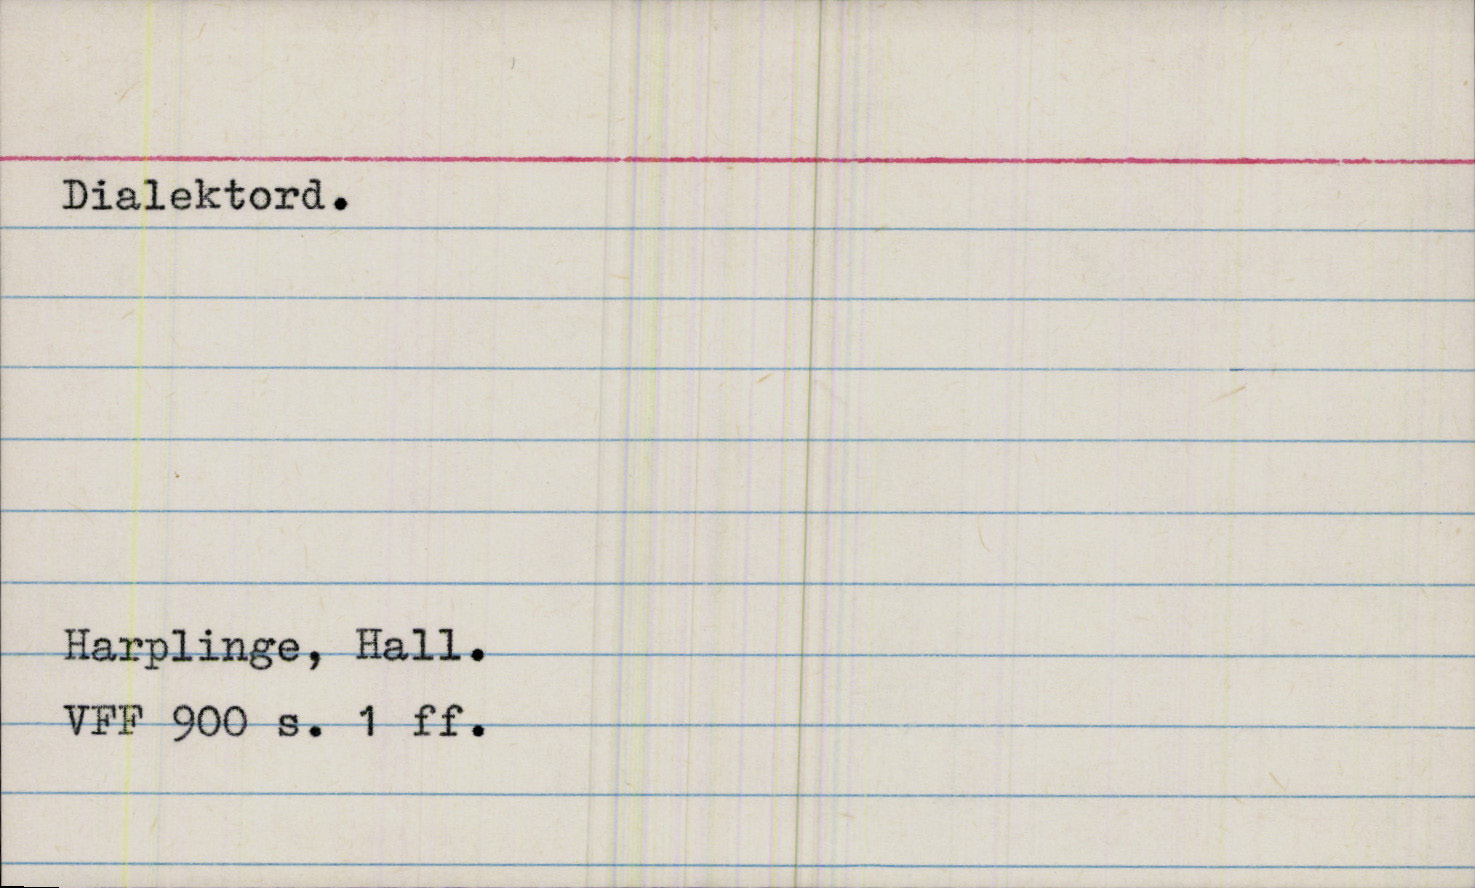 Dialektord.
Harplinge, Hall.
VFF 900 s. 1 ff.